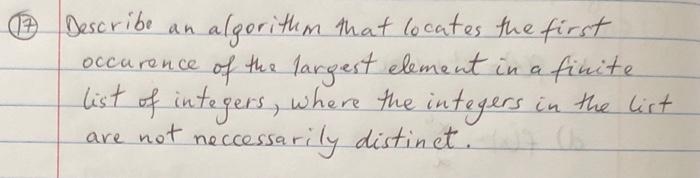 17 Describe an algorithm that locates the first
occurence of the largest element in a finite
list of integers, where the integers in the list
are not neccessarily distinct.